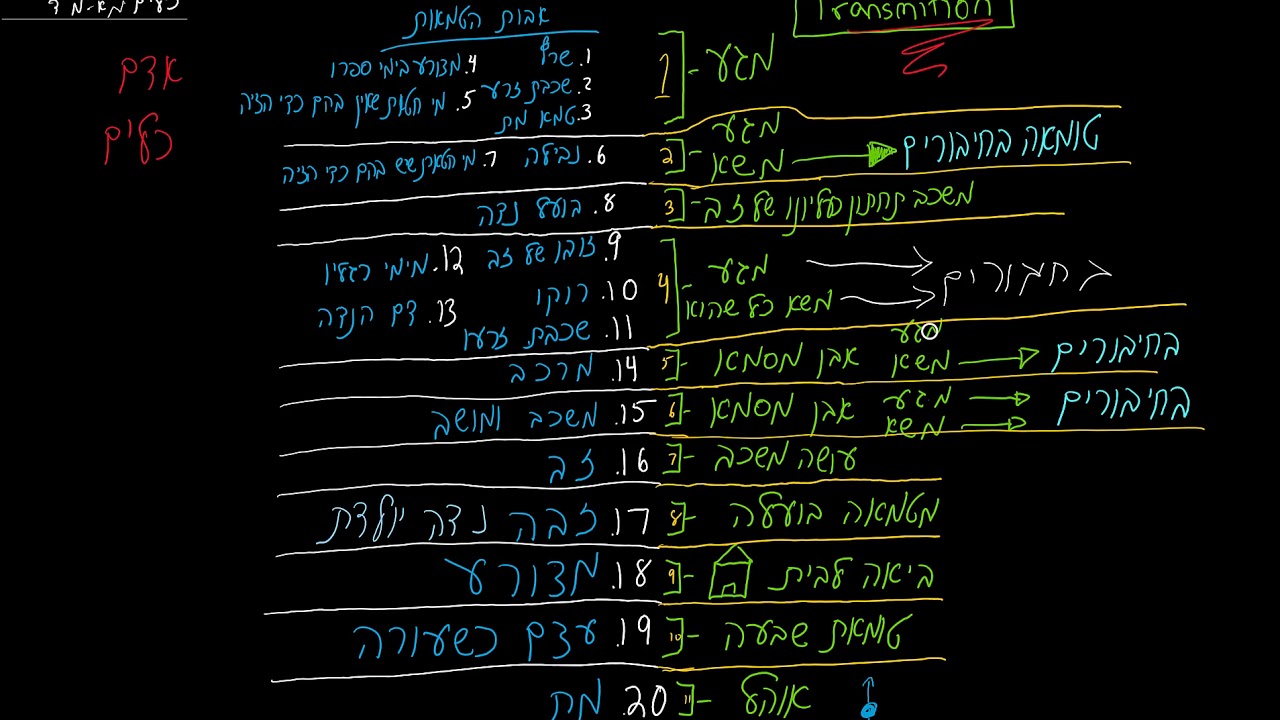 כלים מא-מד
Transmition
אבות הטמאות
אדם
כלים
1. שרץ
2. שכבת זרע
3. טמא מת
4. מצורע בימי ספרו
5. מי חטאת שאין בהם כדי הזיה
1 - מגע
6. נבילה
7. מי חטאת שיש בהם כדי הזיה
2 - מגע
משא → טומאה בחיבורים
8. בועל נדה
3 - משכב תחתון כעליונו של זב
9. זובו של זב
10. רוקו
11. שכבת זרעו
12. מימי רגליו
13. דם הנדה
4 - מגע
משא כל שהוא
בחבורים
14. מרכב
5 - אבן מסמא
מגע
משא → בחיבורים
15. משכב ומושב
6 - אבן מסמא
מגע
משא
בחיבורים
16. זב
7 - עושה משכב
17. זבה נדה יולדת
8 - מטמאה בועלה
18. מצורע
9 - ביאה לבית
19. עצם כשעורה
10 - טומאת שבעה
20. מת
11 - אוהל